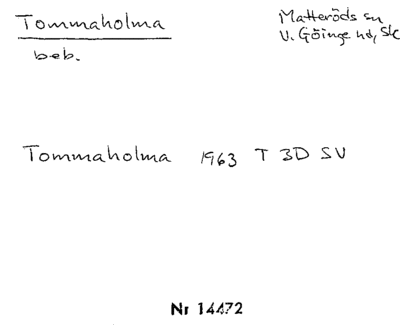 Tommaholma
Matteröds sn
V. Göinge hd, Sk
beb.
Tommaholma 1963 T 3D SV
Nr 14472